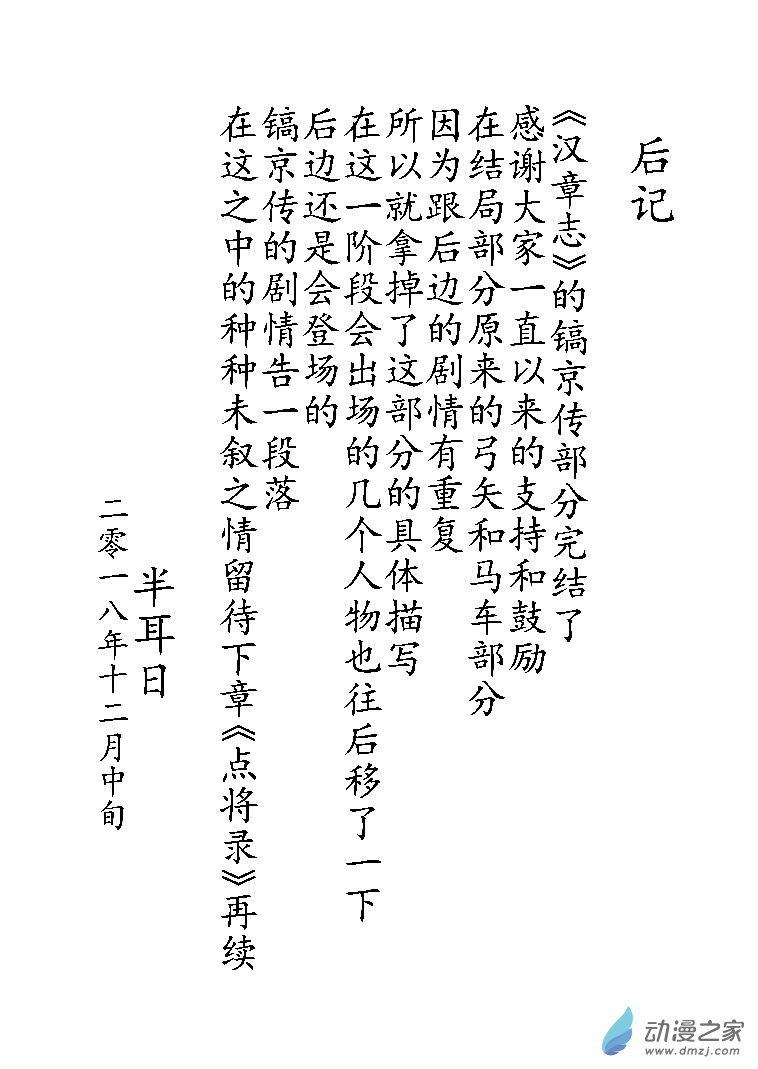 后记
《汉章志》的镐京传部分完结了
感谢大家一直以来的支持和鼓励
在结局部分原来的弓矢和马车部分
因为跟后边的剧情有重复
所以就拿掉了这部分的具体描写
在这一阶段会出场的几个人物也往后移了一下
后边还是会登场的
镐京传的剧情告一段落
在这之中的种种未叙之情留待下章《点将录》再续
半耳日
二零一八年十二月中旬
动漫之家
www.dmzj.com